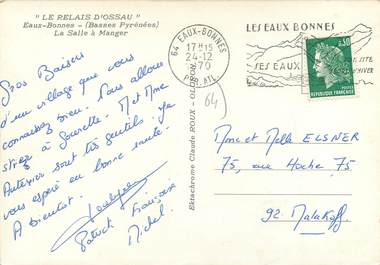 "LE RELAIS D'OSSAU"
Eaux-Bonnes - (Basses Pyrénées)
La Salle à Manger
Gros Baisers
d'un village que vous
connaissez bien. Nous allons
skier à Gourette. M et Mme
sont très gentils. Je
vous espère en bonne santé.
A bientôt.
Patrick François
Michel
Ektachrome Claude ROUX - OLORON
64 EAUX-BONNES
17H15
24-12
1970
LES EAUX BONNES
SES EAUX
SITE
D'HIVER
0,30
REPUBLIQUE FRANÇAISE
64
Mme et Melle ELSNER
75, rue Hoche 75
92. Malakoff